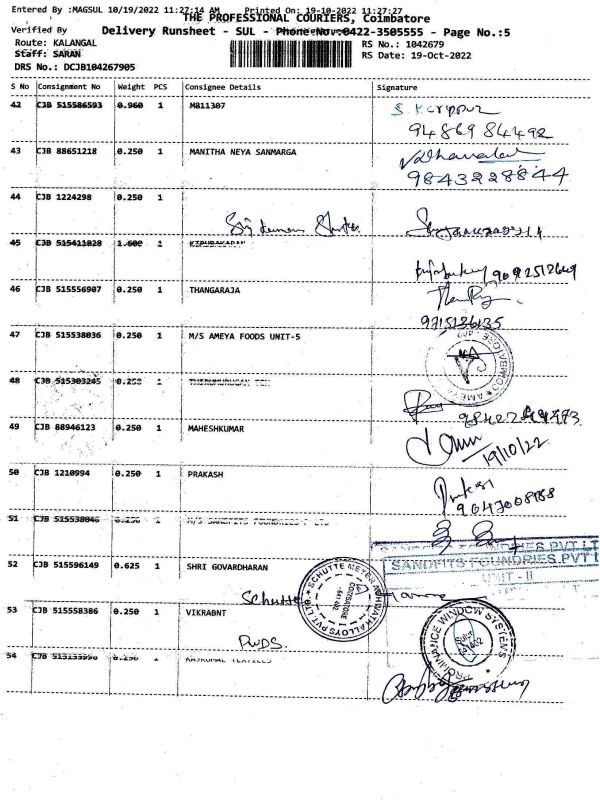 Entered By :MAGSUL 10/19/2022 11:27:14 AM Printed On: 19-10-2022 11:27:27
THE PROFESSIONAL COURIERS, Coimbatore
Verified By
Delivery Runsheet - SUL - Phone No.:0422-3505555 - Page No.:5
Route: KALANGAL RS No.: 1042679
Staff: SARAN RS Date: 19-Oct-2022
DRS No.: DCJB104267905
S No Consignment No Weight PCS Consignee Details Signature
42 CJB 515586593 0.960 1 M811307
94869 84492
43 CJB 88651218 0.250 1 MANITHA NEYA SANMARGA
9843228844
44 CJB 1224298 0.250 1
45 CJB 515411828 1.600 1
46 CJB 515556907 0.250 1 THANGARAJA
9715136135
47 CJB 515538036 0.250 1 M/S AMEYA FOODS UNIT-5
48 CJB 515303245 0.250 1
49 CJB 88946123 0.250 1 MAHESHKUMAR
19/10/22
50 CJB 1210994 0.250 1 PRAKASH
51 CJB 515538046 0.250 1 M/S SANDFITS FOUNDRIES P LTD
SANDFITS FOUNDRIES PVT LT
52 CJB 515596149 0.625 1 SHRI GOVARDHARAN
SANDFITS FOUNDRIES PVT L
UNIT - II
SCHUTTE MEYER ASHIRAT ALLOYS PVT LTD
Schutte
53 CJB 515558386 0.250 1 VIKRABNT
PROMINANCE WINDOW SYSTEMS
PWDS.
54 CJB 1 RAJKUMAL TEXTILES